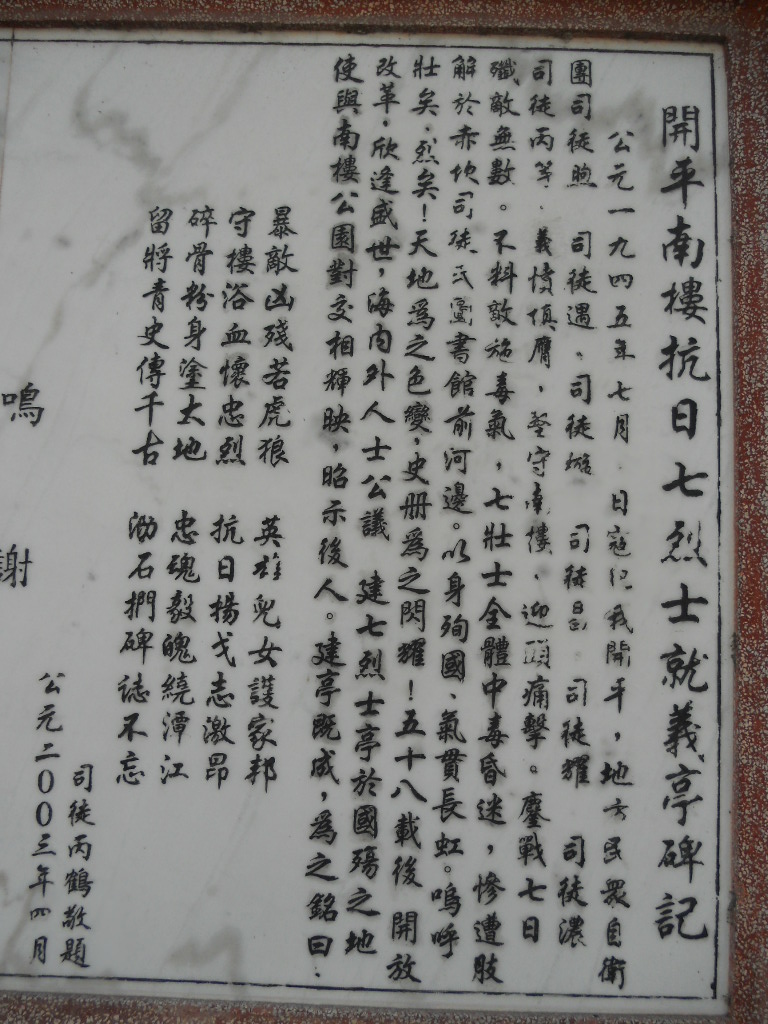 開平南樓抗日七烈士就義亭碑記
公元一九四五年七月．日寇犯我開平，地方民眾自衛
團司徒煦 司徒遇．司徒 司徒昌．司徒耀 司徒濃
司徒丙等．義憤填膺，堅守南樓．迎頭痛擊。鏖戰七日
殲敵無數。不料敵施毒氣，七壯士全體中毒昏迷，慘遭肢
解於赤坎司徒氏圖書館前河邊。以身殉國、氣貫長虹。嗚呼
壯矣．烈矣！天地爲之色變，史册爲之閃耀！五十八載後 開放
改革，欣逢盛世，海内外人士公議 建七烈士亭於國殤之地
使與南樓公園對交相輝映，昭示後人。建亭既成，爲之銘曰．
暴敵凶殘若虎狼 英雄兒女護家邦
守樓浴血懷忠烈 抗日揚戈志激昂
碎骨粉身塗大地 忠魂毅魄繞潭江
留將青史傳千古 泐石捫碑誌不忘
司徒丙鶴敬題
公元二００三年四月
鳴 謝